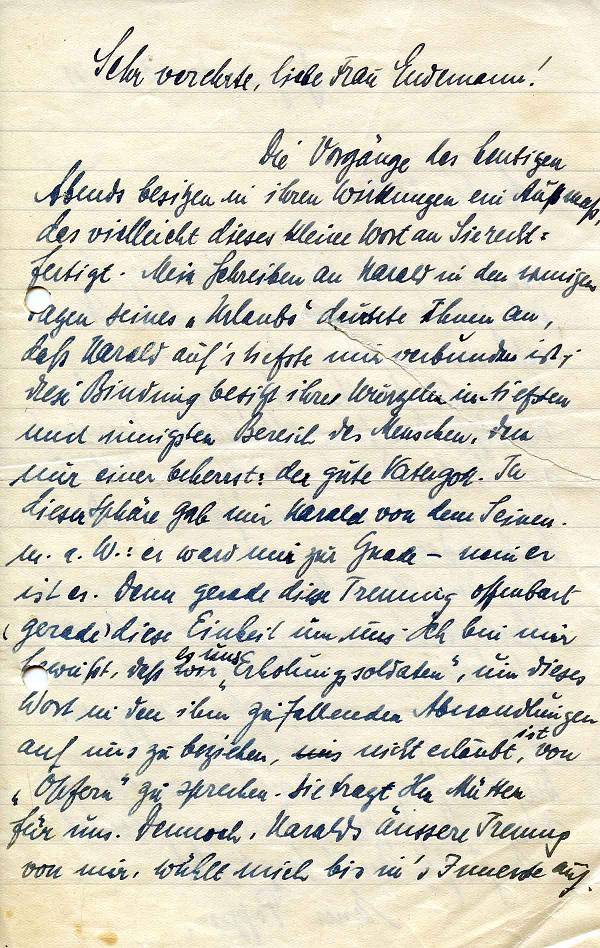 Sehr verehrte, liebe Frau Endemann!
Die Vorgänge des heutigen
Abends besitzen in ihren Wirkungen ein Ausmaß,
das vielleicht dieses kleine Wort an Sie recht=
fertigt. Mein Schreiben an Harald in den wenigen
Tagen seines „Urlaubs" deutete Ihnen an,
daß Harald auf's tiefste mir verbunden ist;
diese Bindung besitzt ihre Wurzeln im tiefsten
und innigsten Bereich des Menschen, den
nur einer beherrst: der gute Vatergott. In
dieser Sphäre gab mir Harald von dem Seinen.
m. a. W.: er ward mir zur Gnade – nein er
ist es. Denn gerade diese Trennung offenbart
(gerade) diese Einheit um uns. Ich bin mir
bewußt, daß es uns „Erholungssoldaten", um dieses
Wort in den ihm zufallenden Abwandlungen
auf uns zu beziehen, nicht erlaubt ist, von
„Opfern" zu sprechen. Sie tragt Ihr Mütter
für uns. Dennoch, Haralds äussere Trennung
von mir, wühlt mich bis in's Innerste auf.